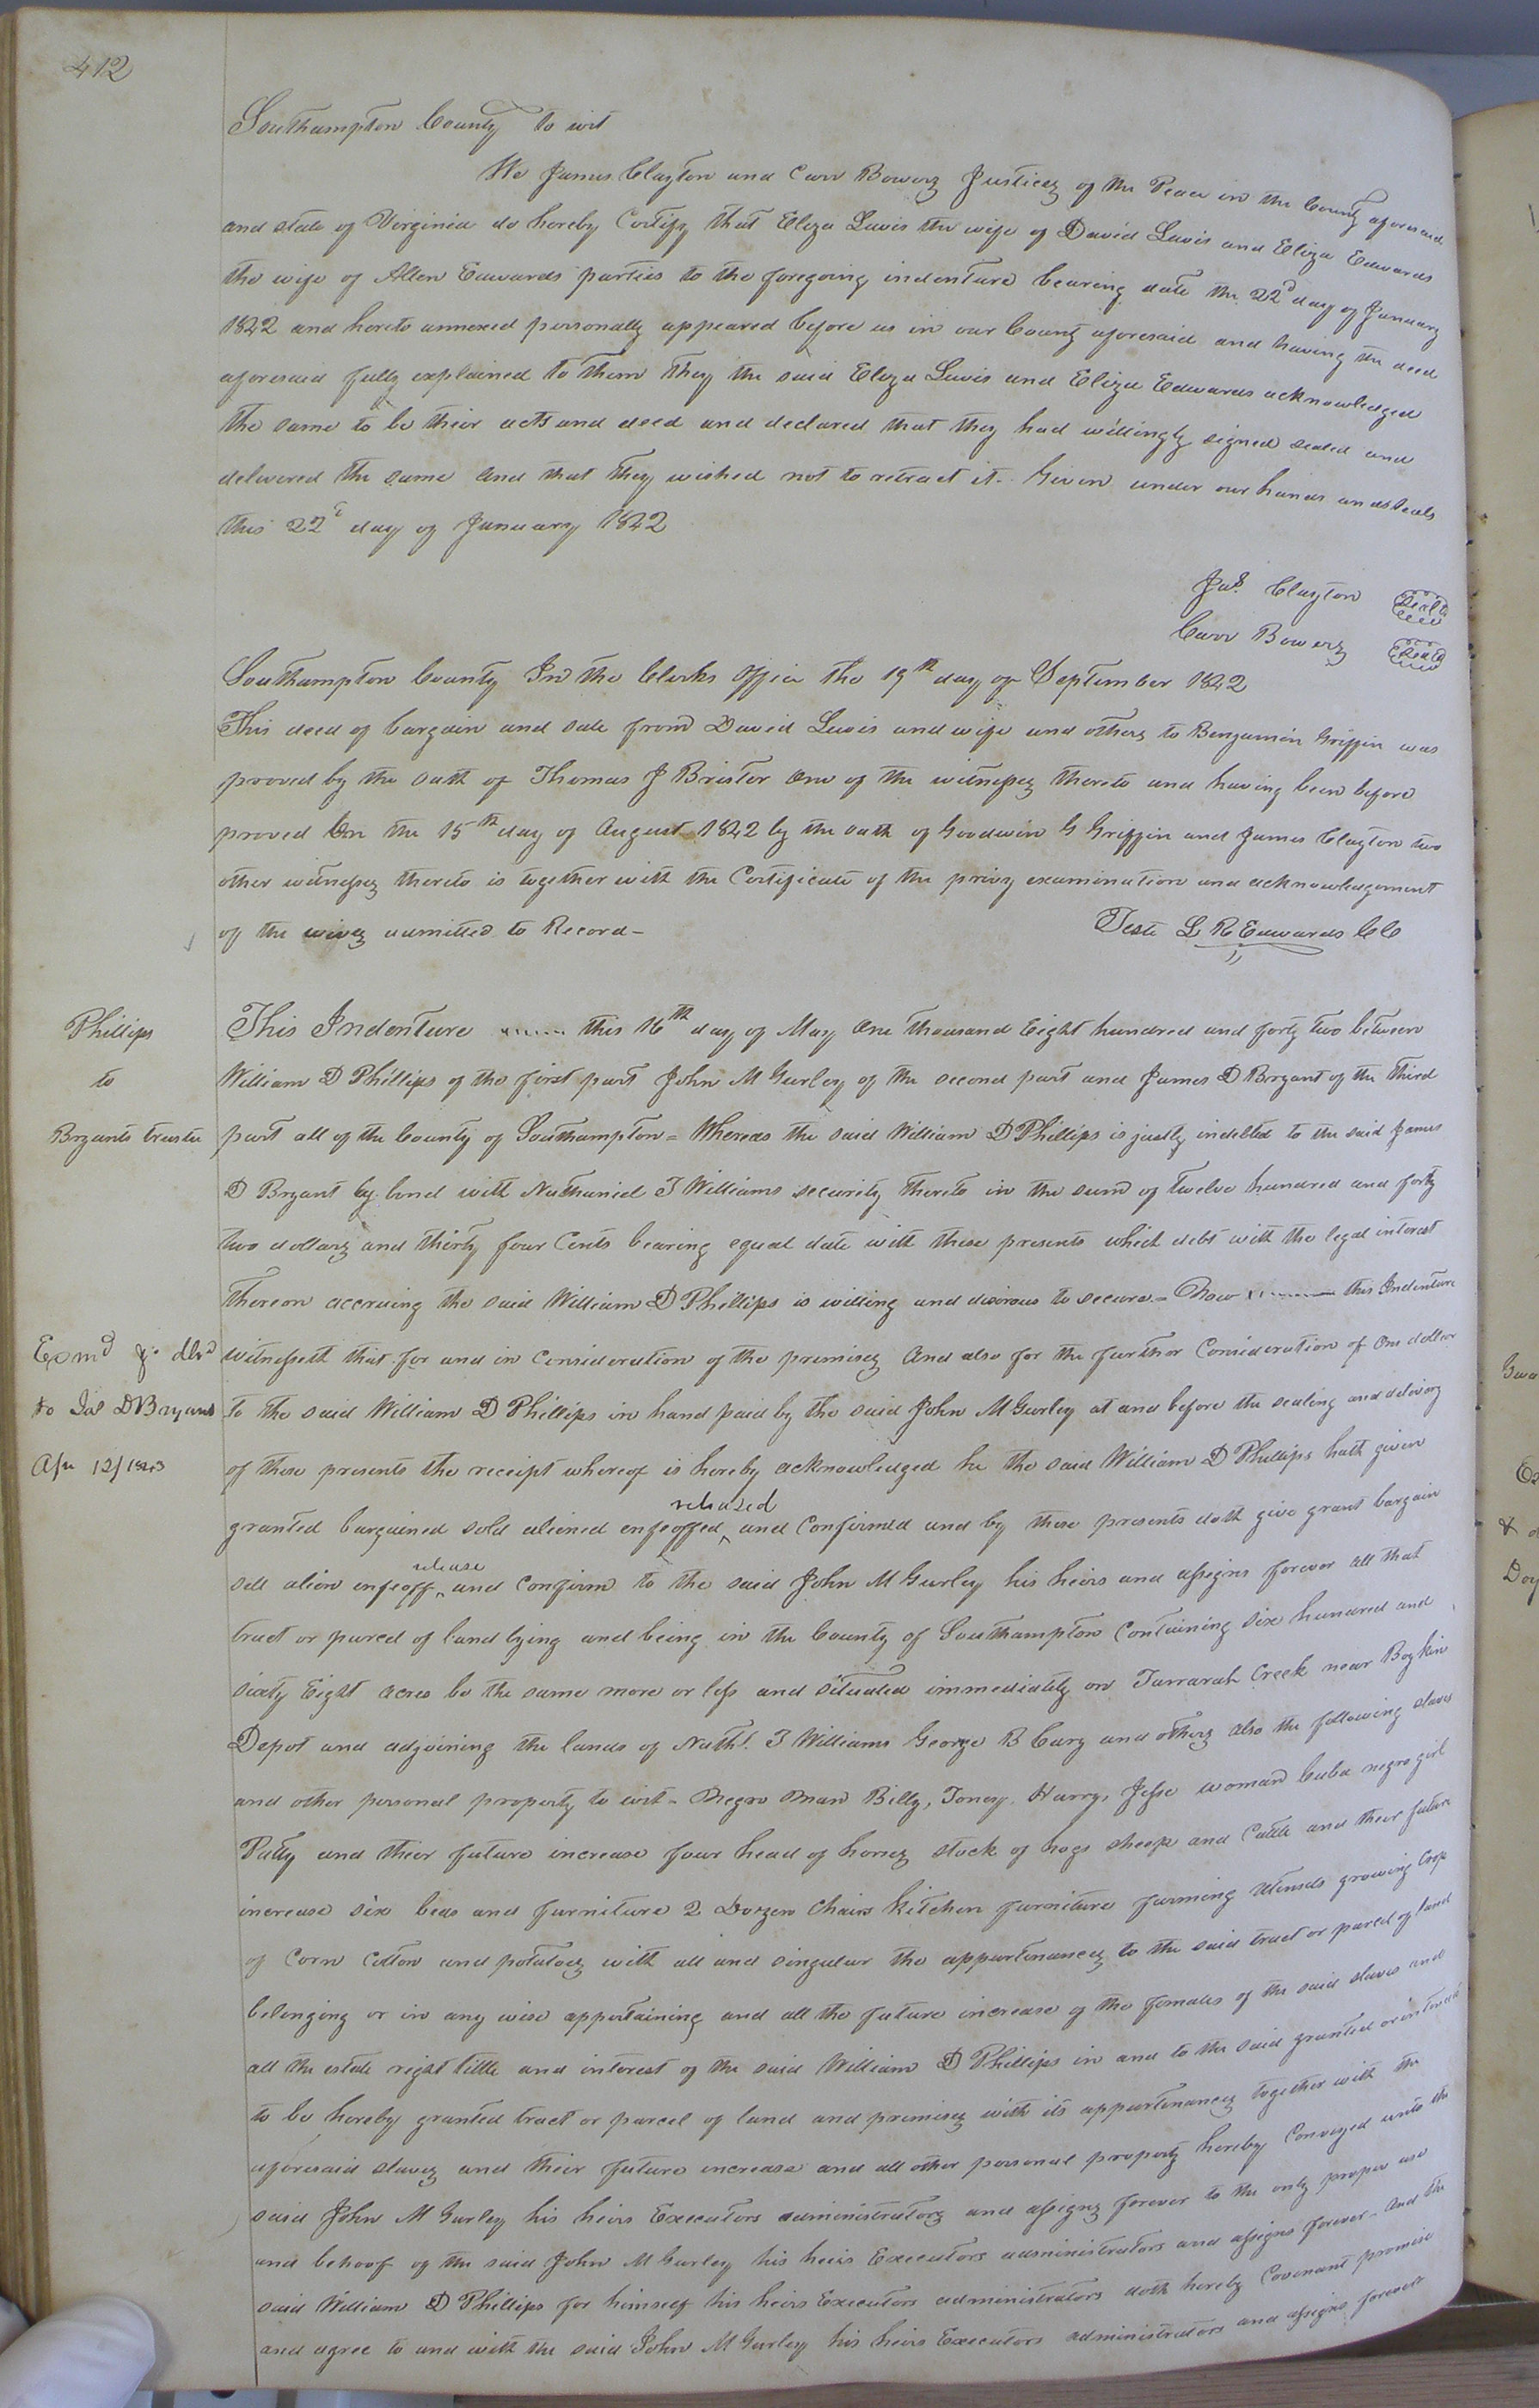 412
Southampton County to wit
We James Clayton and Carr Bowers Justices of the Peace in the County aforesaid
and state of Virginia do hereby Certify that Eliza Lewis the wife of David Lewis and Eliza Edwards
the wife of Allen Edwards parties to the foregoing indenture bearing date the 22d day of January
1842 and hereto annexed personally appeared before us in our County aforesaid and having the deed
aforesaid fully explained to them they the said Eliza Lewis and Eliza Edwards acknowledged
the same to be their acts and deed and declared that they had willingly signed sealed and
delivered the same and that they wished not to retract it. Given under our hands and seals
this 22d day of January 1842
Jas. Clayton Seal
Carr Bowers Seal
Southampton County In the Clerks Office the 19th day of September 1842
This deed of bargain and sale from David Lewis and wife and others to Benjamin Griffin was
proved by the oath of Thomas J Brister one of the witnesses thereto and having been before
proved on the 15th day of August 1842 by the oath of Goodwin G Griffin and James Clayton two
other witnesses thereto is together with the Certificate of the privy examination and acknowledgement
of the wives admitted to Record-
Teste L R Edwards CC
Phillips
to
Bryants trustee
This Indenture this 16th day of May One thousand Eight hundred and forty two between
William D Phillips of the first part John M Gurley of the second part and James D Bryant of the third
part all of the County of Southampton = Whereas the said William D Phillips is justly indebted to the said James
D Bryant by bond with Nathaniel T Williams security thereto in the sum of twelve hundred and forty
two dollars and thirty four Cents bearing equal date with these presents which debt with the legal interest
thereon accruing the said William D Phillips is willing and desirous to secure = Now this Indenture
Exmd & dlvd
to Jas D Bryant
Apr 12/1843
witnesseth that for and in Consideration of the premises And also for the further Consideration of one dollar
to the said William D Phillips in hand paid by the said John M Gurley at and before the sealing and delivery
of these presents the receipt whereof is hereby acknowledged he the said William D Phillips hath given
granted bargained sold aliened enfeoffed released and Confirmed and by these presents doth give grant bargain
sell alien enfeoff release and Confirm to the said John M Gurley his heirs and assigns forever all that
tract or parcel of land lying and being in the County of Southampton Containing six hundred and
sixty Eight acres be the same more or less and situated immediately on Tarrarah Creek near Boykin
Depot and adjoining the lands of Nathl. T Williams George B Cary and others also the following slaves
and other personal property to wit = Negro man Billy, Toney, Harry, Jesse woman Cuba negro girl
Patty and their future increase four head of horses stock of hogs sheep and Cattle and their future
increase six beds and furniture 2 Dozen Chairs kitchen furniture farming utensils growing Crop
of Corn Cotton and potatoes with all and singular the appurtenances to the said tract or parcel of land
belonging or in any wise appertaining and all the future increase of the females of the said slaves and
all the estate right tittle and interest of the said William D Phillips in and to the said granted or intended
to be hereby granted tract or parcel of land and premises with its appurtenances together with the
aforesaid slaves and their future increase and all other personal property hereby Conveyed unto the
said John M Gurley his heirs Executors administrators and assigns forever to the only proper use
and behoof of the said John M Gurley his heirs Executors administrators and assigns forever - And the
said William D Phillips for himself his heirs Executors administrators doth hereby Covenant promise
and agree to and with the said John M Gurley his heirs Executors administrators and assigns forever